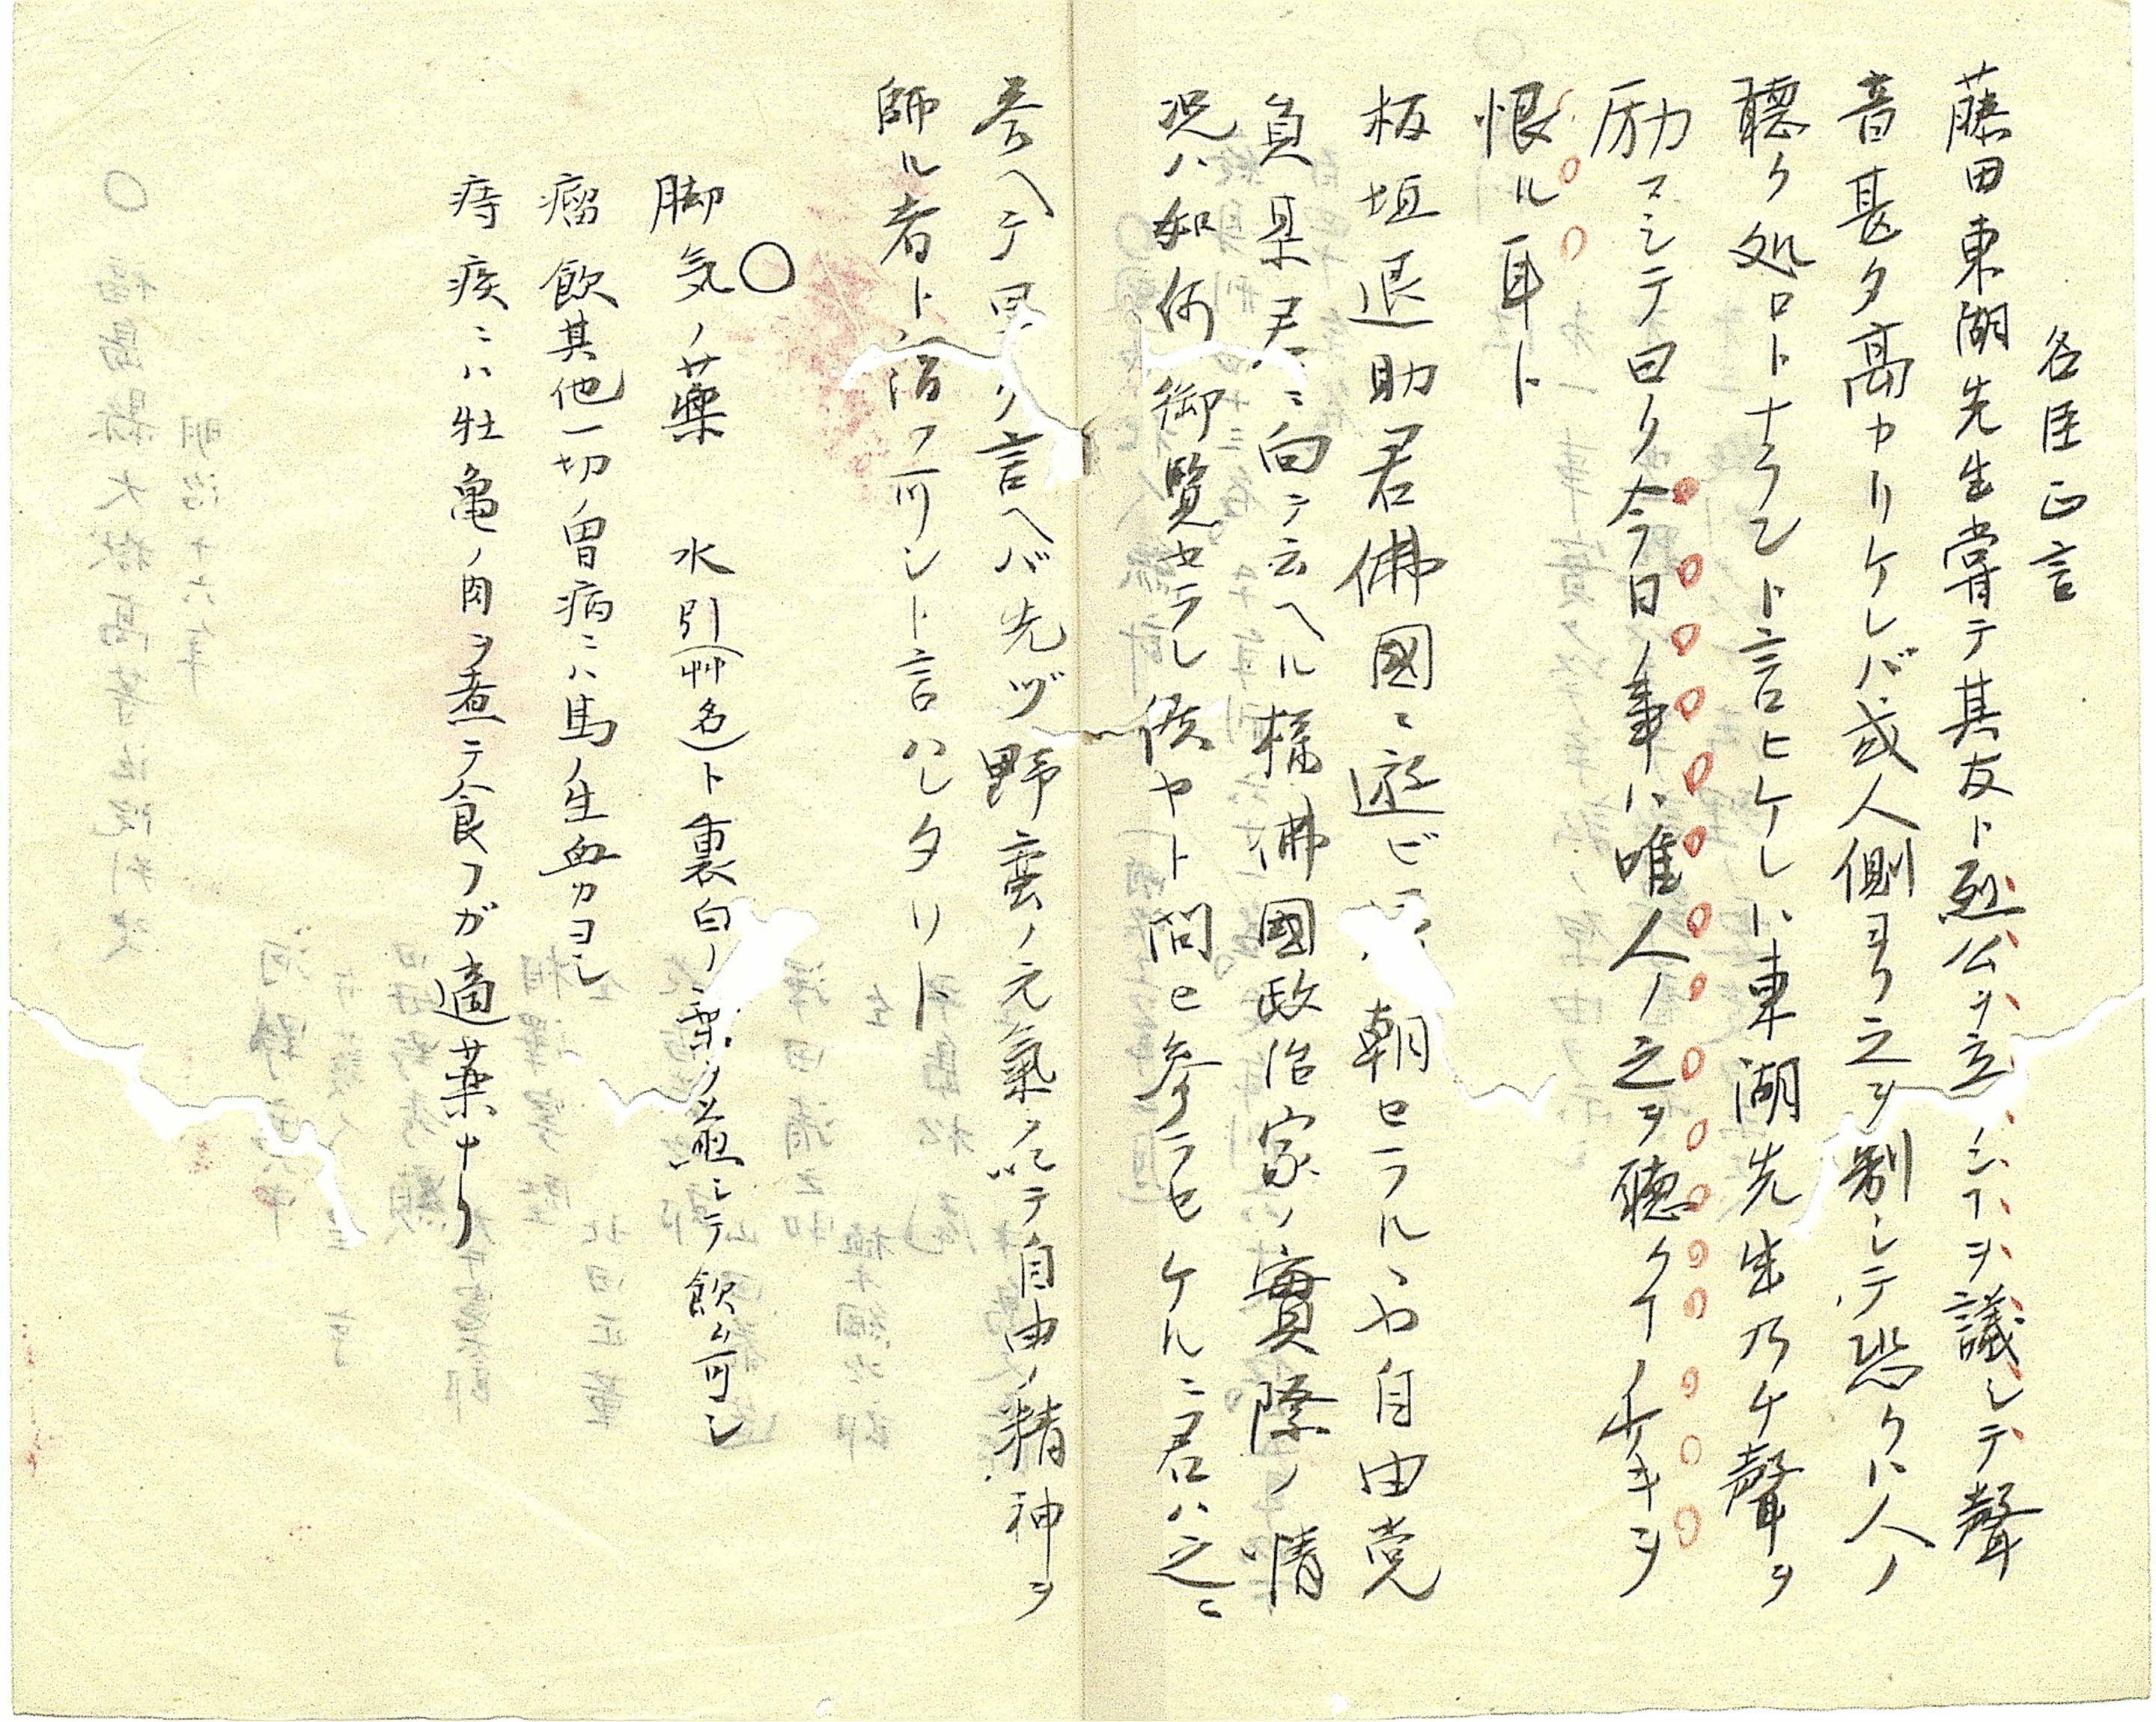 各臣正言
藤田東湖先生嘗テ其友ト烈公ヲ立ンヿヲ議シテ聲
音甚タ高カリケレバ或人側ヨリ之ヲ制シテ恐クハ人ノ
聴ク処ロトナラント言ヒケレハ東湖先生乃ケ聲ヲ
励マシテ曰ク今日ノ事ハ唯人ノ之ヲ聴クヿノ少ナキヲ
恨ル耳ト
板垣退助君佛國ニ遊ビ 朝セラルヽや自由党
員某君ニ向テ云ヘル様佛國政治家ノ實際ノ情
况ハ如何御覧セラレ候ヤト問ヒ参ラセケルニ君ハ之ニ
答ヘテ 言ヘバ先ヅ野蛮ノ元氣ヲ以テ自由ノ精神ヲ
師ル者ト謂フ可ント言ハレタリト
○
脚気ノ藥 水引(艸名)ト裏白ノ葉ヲ煎シテ飲ム可シ
瘤飲其他一切胃病ニハ馬ノ生血カヨシ
痔疾ニハ牡亀ノ肉ヲ煮テ食フガ適薬ナリ